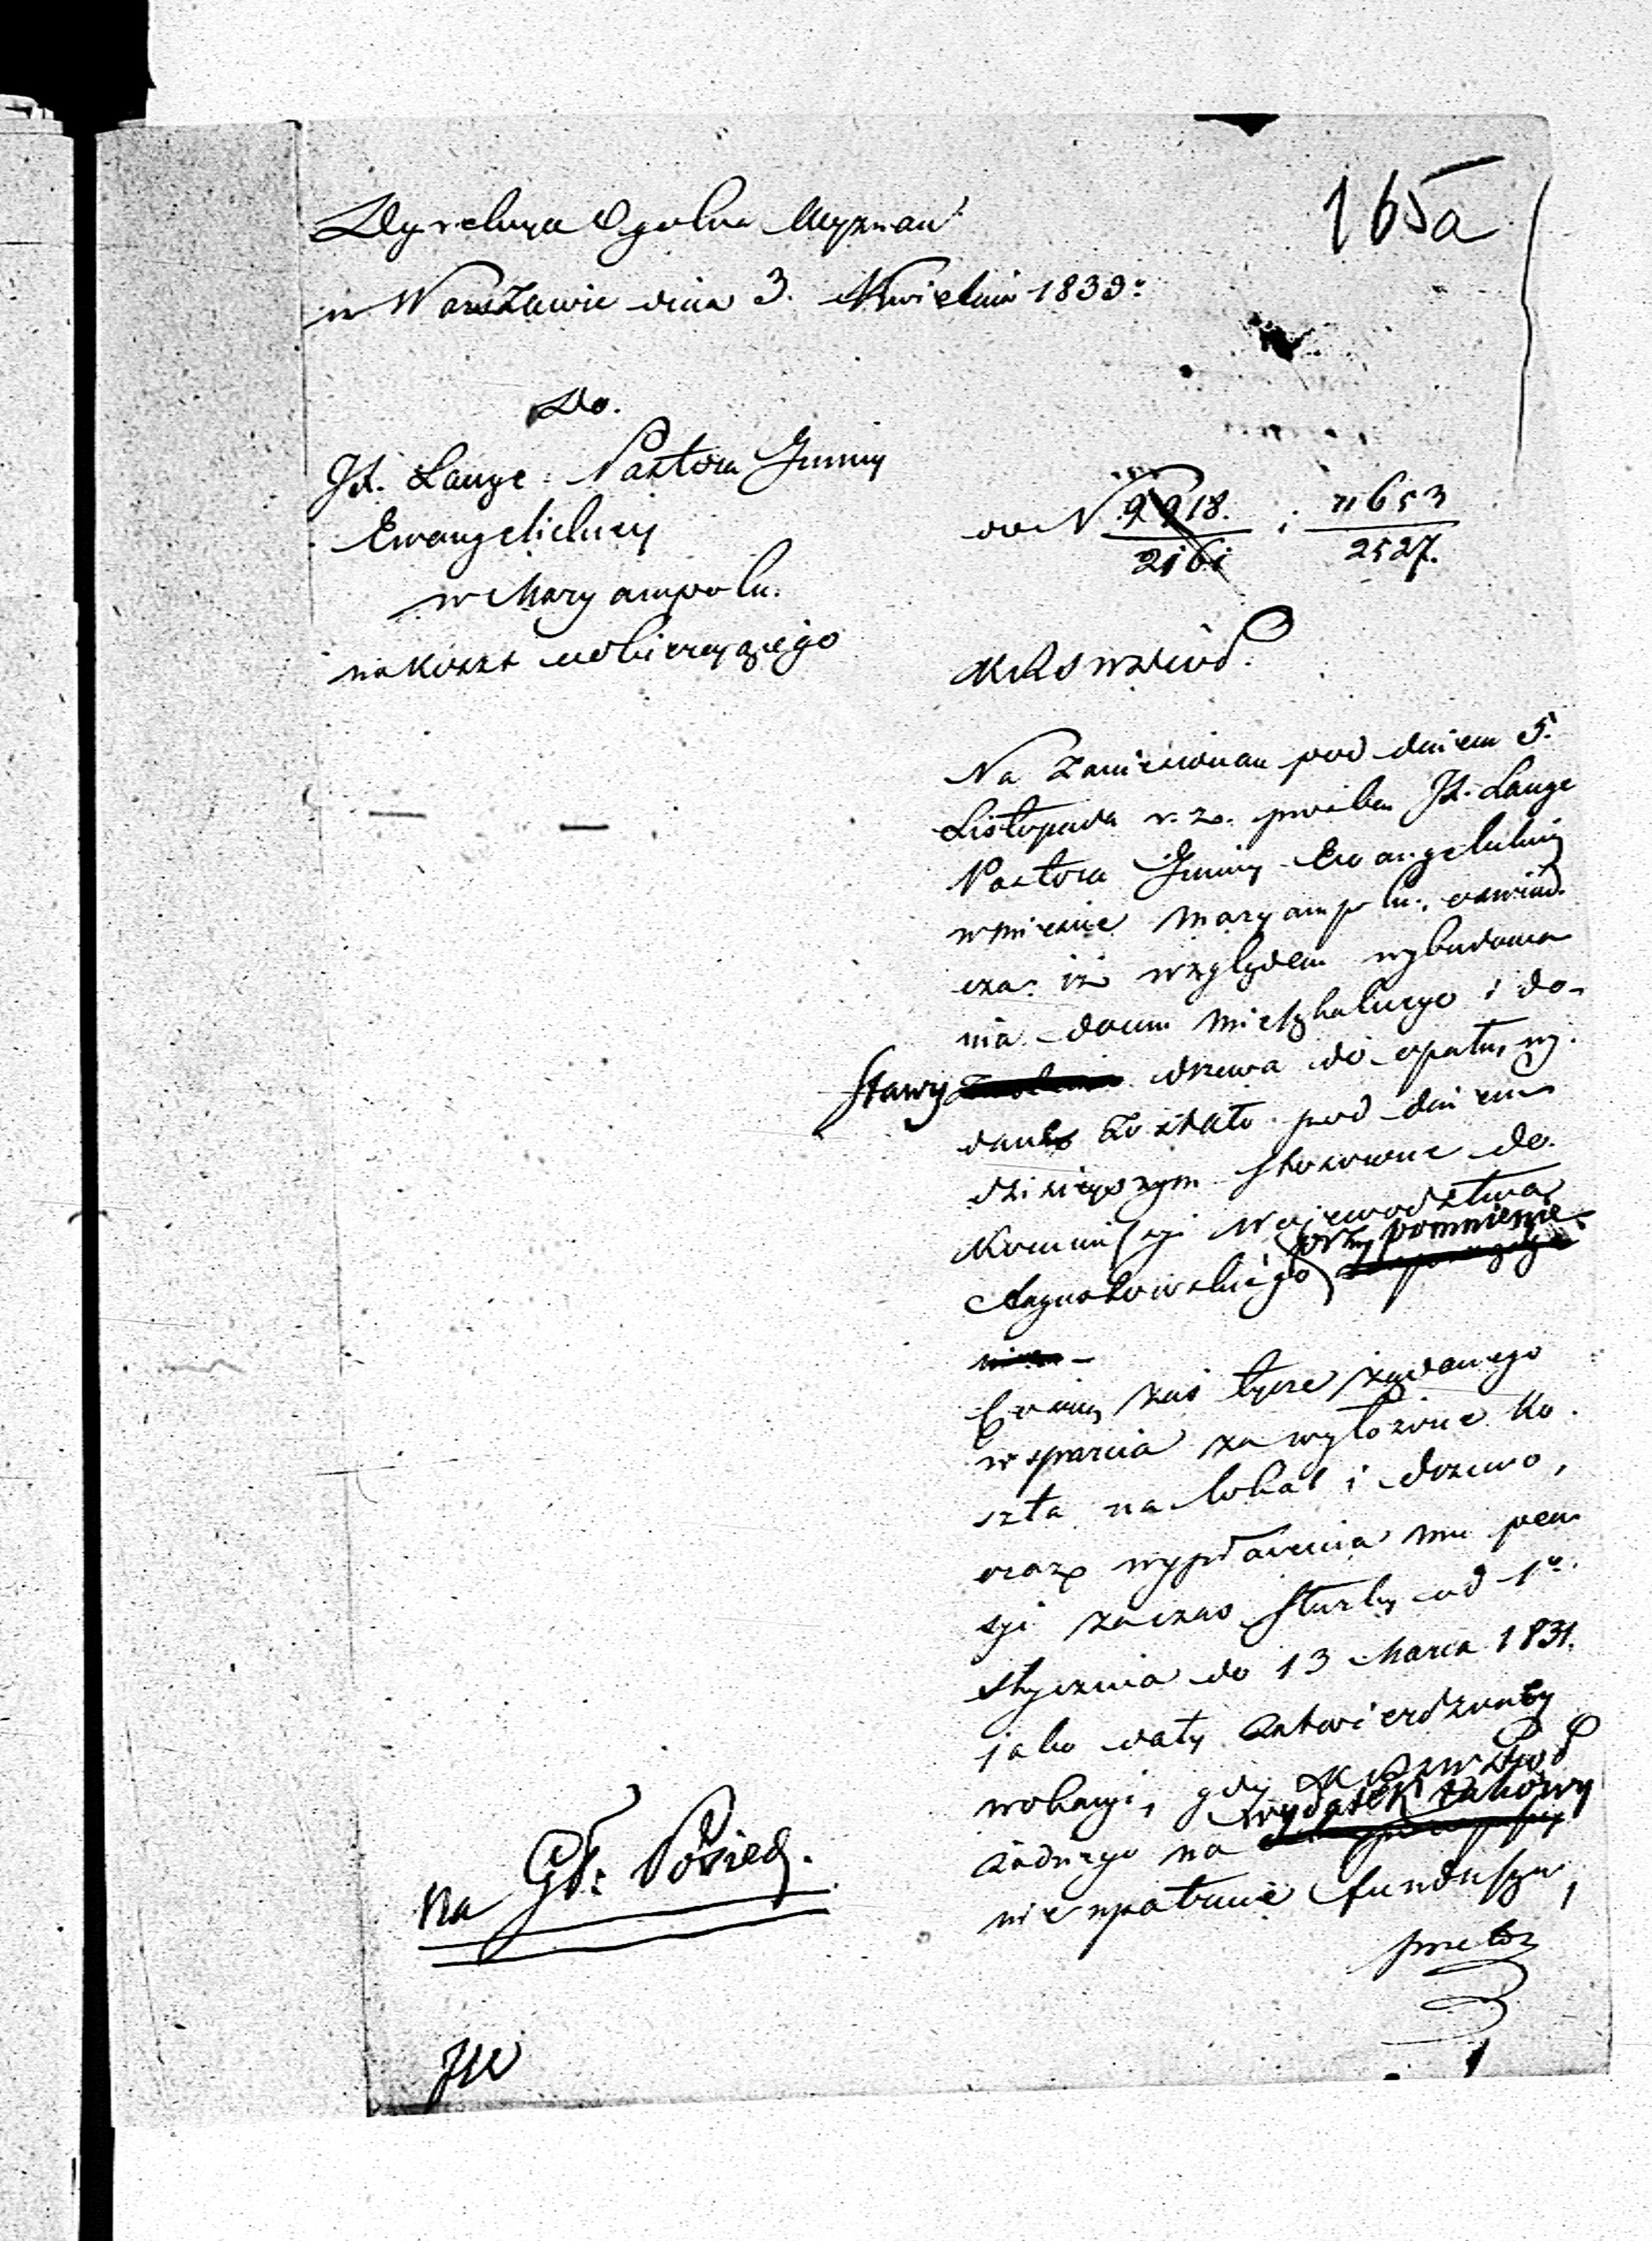 165a
Dyrekcya Ogólna Wyznań
w Warszawie dnia 3. Kwietnia 1833.
Do.
JX. Lange Pastora Gminy
Ewangelickiey
w Maryampolu.
na koszt odbierającego
do N 9918./2161 i 11653/2527.
KRSWDiOP.
Na zaniesioną pod dniem 5.
Listopada r. z. prośbę JX. Lange
Pastora Gminy Ewangelickiey
w mieście Maryampolu, oświad-
cza iż względem wybudowa-
nia domu mieszkalnego i do-
stawy drzewa do opału, wy-
dane zostało pod dniem
dzisieyszym stosowne do
Kommissyi Województwa
Augustowskiego przypomnienie.
Co się zaś tycze żądanego
wsparcia za wyłożone ko-
szta na lokal i drzewo,
oraz wypłacenia mu pen-
syi za czas służby od 1o.
stycznia do 13 Marca 1831.
jako daty zatwierdzenia
wokacyi, gdy KRSWDiOP
żadnego na wydatek takowy
nie upatruie funduszu,
przeto
na Gł: Posied.